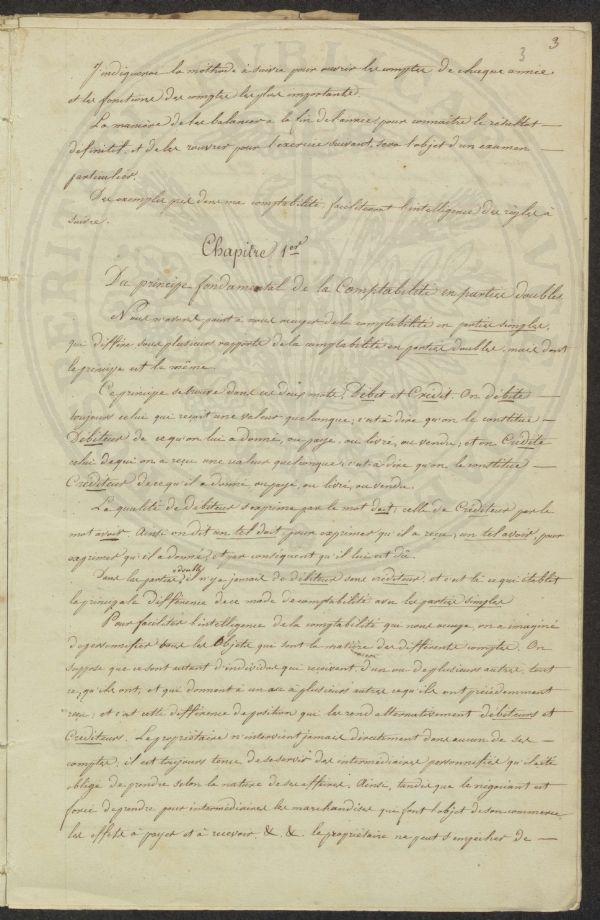 3
3
J'indiquerai la méthode à suivre pour ouvrir les comptes de chaque année
et les fonctions des comptes les plus importants.
La manière de les balancer à la fin de l'année, pour connaître le résultat —
définitif, et de les rouvrir pour l'exercice suivant, sera l'objet d'un examen —
particulier.
Des exemples pris dans ma comptabilité faciliteront l'intelligence des règles à
suivre.
Chapitre 1er
Du principe fondamental de la Comptabilité en parties doubles
Nous n'avons point à nous occuper de la comptabilité en parties simples,
qui diffère sous plusieurs rapports de la comptabilité en parties doubles, mais dont
le principe est le même.
Ce principe se trouve dans ces deux mots, Débit et Crédit. On débite —
toujours celui qui reçoit une valeur quelconque; c'est à dire qu'on le constitue —
Débiteur de ce qu'on lui a donné, ou payé, ou livré, ou vendu; et on Crédite
celui de qui on a reçu une valeur quelconque; c'est à dire qu'on le constitue —
Créditeur de ce qu'il a donné, ou payé, ou livré, ou vendu.
La qualité de débiteur s'exprime par le mot doit; celle de Créditeur par le
mot avoir. Ainsi on dit un tel doit pour exprimer qu'il a reçu; un tel avoir, pour
exprimer qu'il a donné, et par conséquent qu'il lui est dû.
Dans les parties doubles il n'y a jamais de débiteur sans créditeur, et c'est là ce qui établit
la principale différence de ce mode de comptabilité avec les parties simples
Pour faciliter l'intelligence de la comptabilité qui nous occupe, on a imaginé
de personnifier tous les Objets qui sont la matière des différents comptes. On
suppose que ce sont autant d'individus qui reçoivent d'un ou de plusieurs autres tout
ce qu'ils ont, et qui donnent à un ou à plusieurs autres ce qu'ils ont précédemment
reçu; et c'est cette différence de position qui les rend alternativement débiteurs et
Créditeurs. Le propriétaire n'intervient jamais directement dans aucun de ses —
comptes, il est toujours tenu de se servir des intermédiaires personnifiés qu'il a été
obligé de prendre selon la nature de ses affaires. Ainsi, tandis que le négociant est
forcé de prendre pour intermédiaires les marchandises qui font l'objet de son commerce,
les effets à payer et à recevoir, &. &. le propriétaire ne peut s'empêcher de —